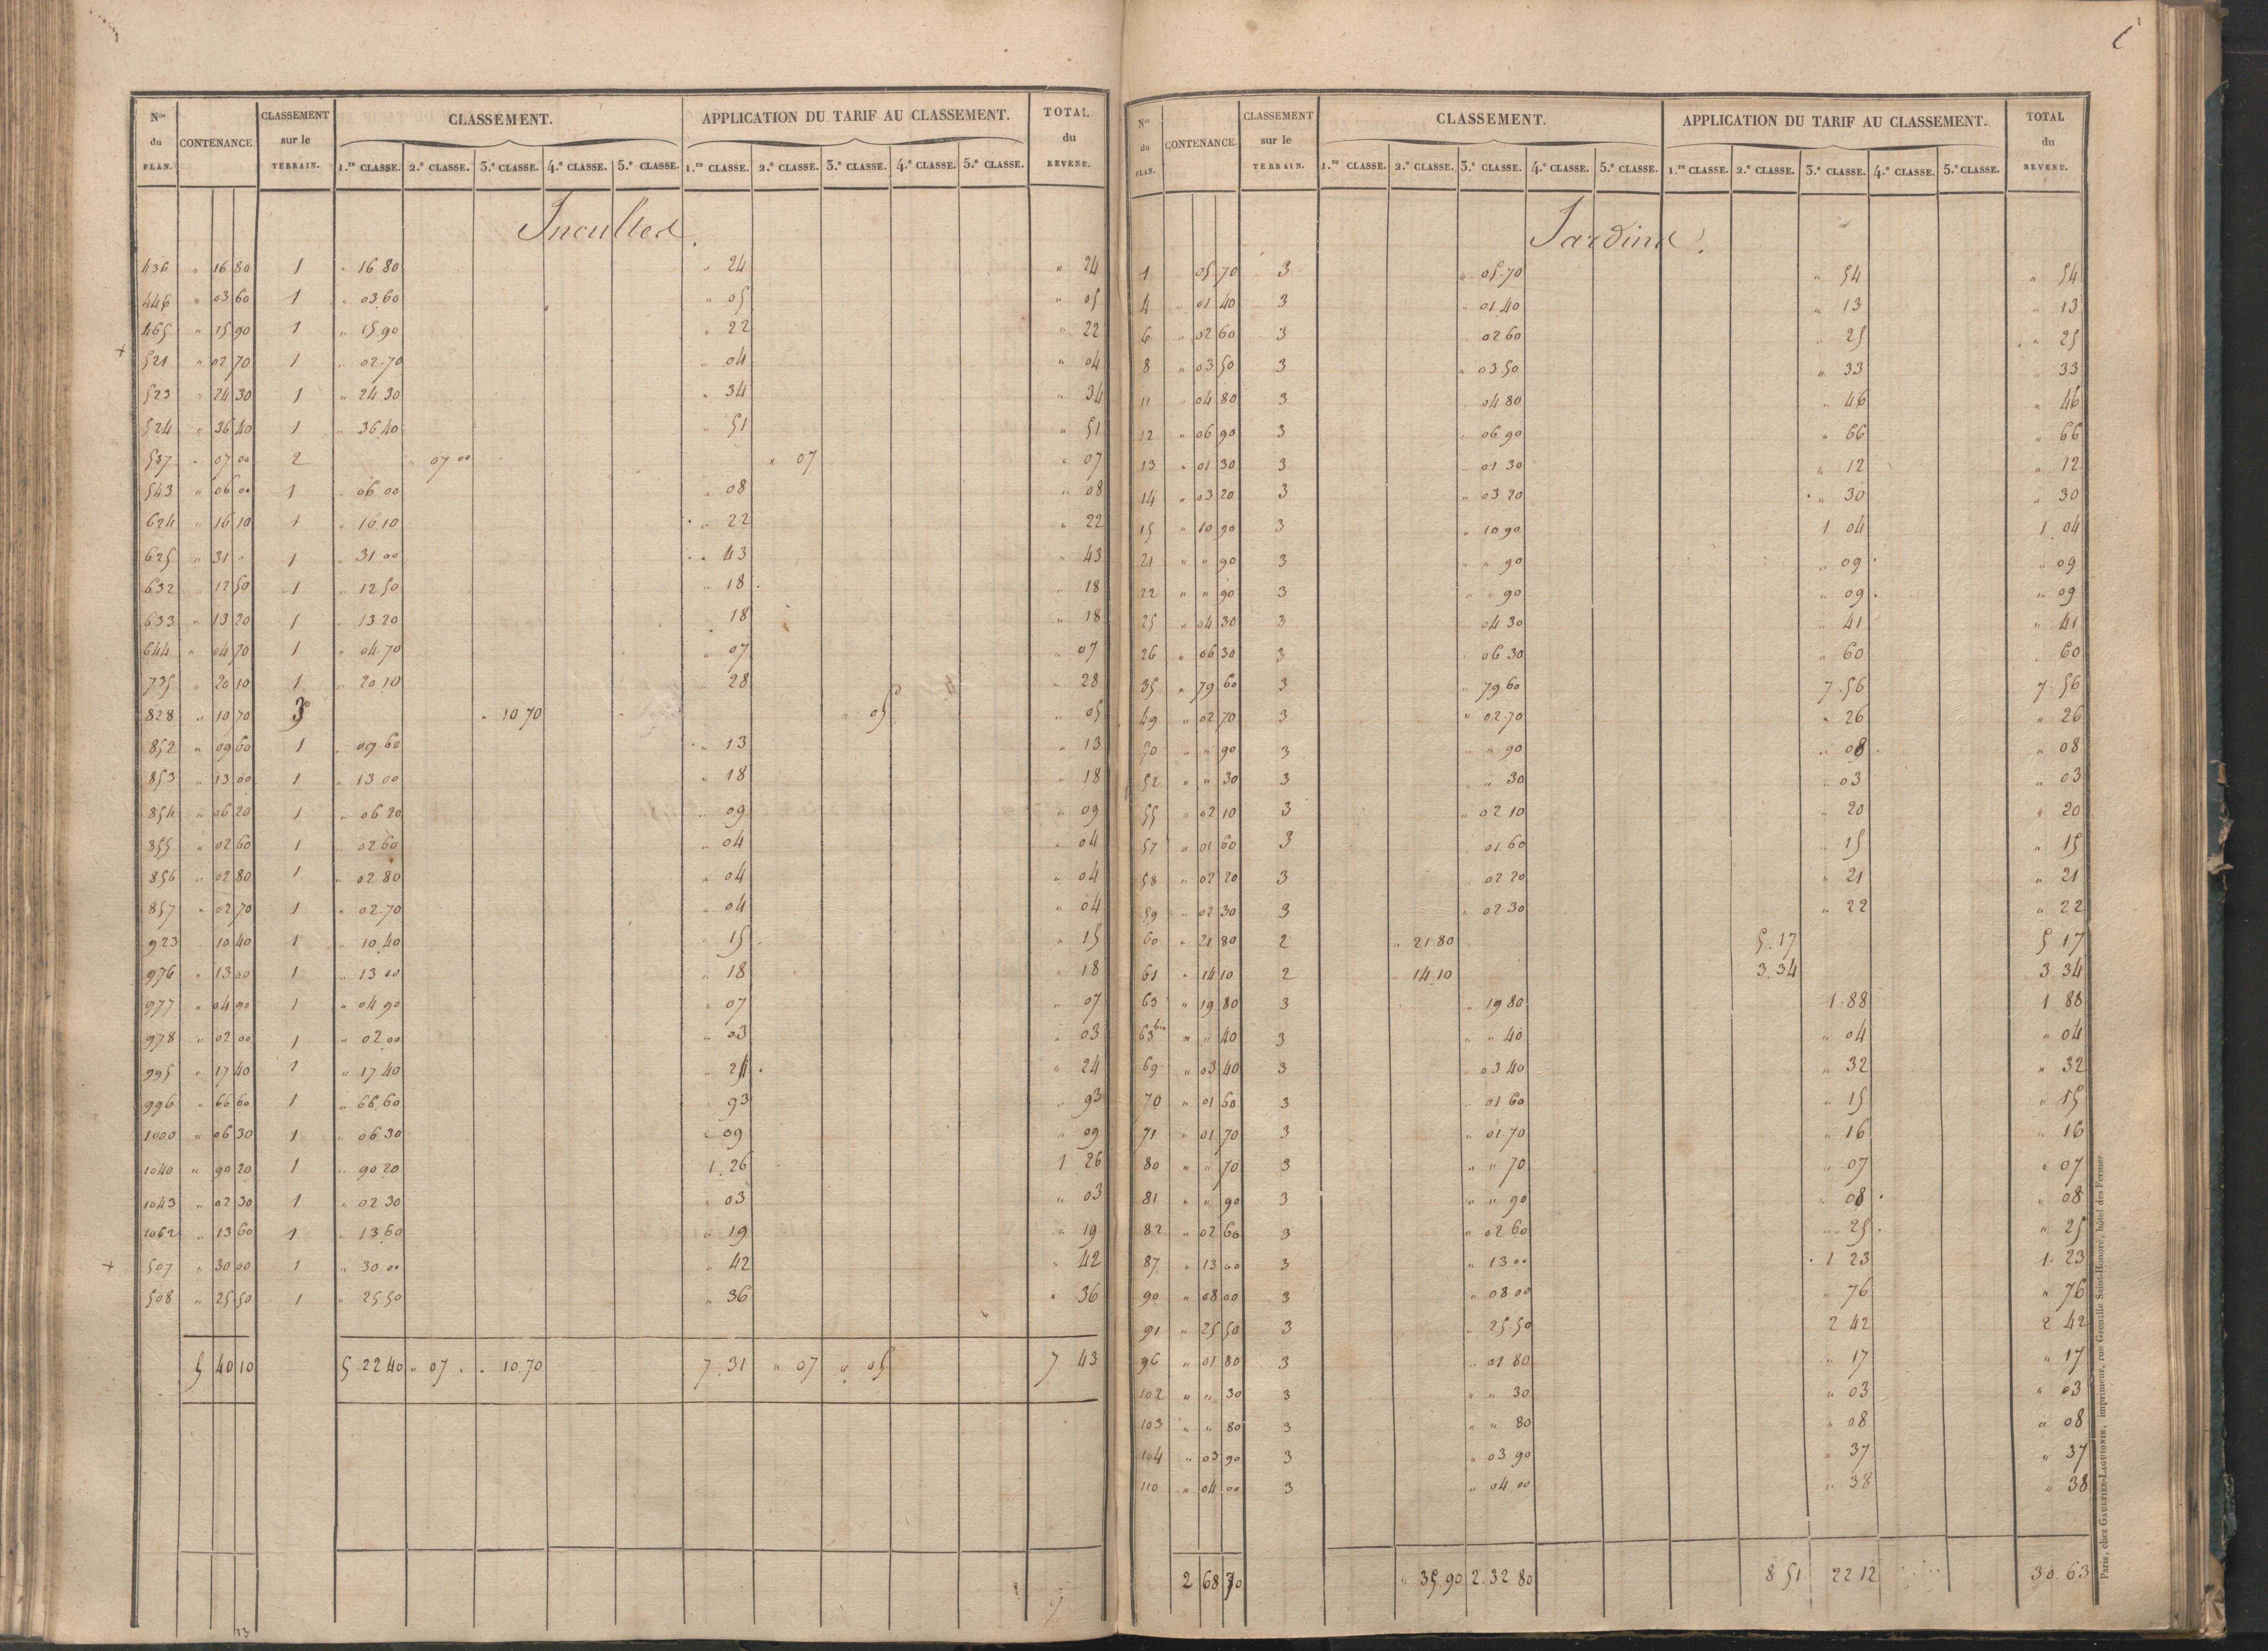 N.os du PLAN. CONTENANCE. CLASSEMENT sur le TERRAIN. CLASSEMENT. APPLICATION DU TARIF AU CLASSEMENT. TOTAL du REVENU.
1.re CLASSE. 2.e CLASSE. 3.e CLASSE. 4.e CLASSE. 5.e CLASSE. 1.re CLASSE. 2.e CLASSE. 3.e CLASSE. 4.e CLASSE. 5.e CLASSE.
Incultes.
436 " 16 80 1 " 16 80 " 24 " 24
446 " 03 60 1 " 03 60 " 05 " 05
465 " 15 90 1 " 15 90 " 22 " 22
+ 521 " 02 70 1 " 02.70 " 04 " 04
523 " 24 30 1 " 24 30 " 34 " 34
524 " 36 40 1 " 36 40 " 51 " 51
537 " 07 00 2 " 07 00 " 07 " 07
543 " 06 00 1 " 06 00 " 08 " 08
624 " 16 10 1 " 16 10 " 22 " 22
625 " 31 " 1 " 31 00 " 43 " 43
632 " 12 50 1 " 12 50 " 18 " 18
633 " 13 20 1 " 13 20 " 18 " 18
644 " 04 70 1 " 04.70 " 07 " 07
735 " 20 10 1 " 20 10 " 28 " 28
828 " 10 70 3 " 10 70 " 05 " 05
852 " 09 60 1 " 09.60 " 13 " 13
853 " 13 00 1 " 13 00 " 18 " 18
854 " 06 20 1 " 06 20 " 09 " 09
855 " 02 60 1 " 02 60 " 04 " 04
856 " 02 80 1 " 02 80 " 04 " 04
857 " 02 70 1 " 02.70 " 04 " 04
923 " 10 40 1 " 10 40 " 15 " 15
976 " 13 00 1 " 13 00 " 18 " 18
977 " 04 90 1 " 04 90 " 07 " 07
978 " 02 00 1 " 02 00 " 03 " 03
995 " 17 40 1 " 17 40 " 24 " 24
996 " 66 60 1 " 66 60 " 93 " 93
1000 " 06 30 1 " 06 30 " 09 " 09
1040 " 90 20 1 " 90 20 1. 26 1 26
1043 " 02 30 1 " 02 30 " 03 " 03
1062 " 13 60 1 " 13 60 " 19 " 19
+ 507 " 30 00 1 " 30 00 " 42 " 42
508 " 25 50 1 " 25.50 " 36 " 36
5 40 10 5. 22 40 " 07 " " 10.70 7. 31 " 07 " 05 7. 43
N.os du PLAN. CONTENANCE. CLASSEMENT sur le TERRAIN. CLASSEMENT. APPLICATION DU TARIF AU CLASSEMENT. TOTAL du REVENU.
1.re CLASSE. 2.e CLASSE. 3.e CLASSE. 4.e CLASSE. 5.e CLASSE. 1.re CLASSE. 2.e CLASSE. 3.e CLASSE. 4.e CLASSE. 5.e CLASSE.
Jardins.
1 " 05 70 3 " 05.70 " 54 " 54
4 " 01 40 3 " 01.40 " 13 " 13
6 " 02 60 3 02 60 " 25 " 25
8 " 03 50 3 " 03.50 " 33 " 33
11 " 04 80 3 " 04 80 " 46 " 46
12 " 06 90 3 " 06 90 " 66 " 66
13 " 01 30 3 " 01 30 " 12 " 12
14 " 03 20 3 " 03 20 " 30 " 30
15 " 10 90 3 " 10 90 1 04 1. 04
21 " " 90 3 " " 90 " 09 " 09
22 " " 90 3 " " 90 " 09 " 09
25 " 04 30 3 04 30 " 41 " 41
26 " 06 30 3 " 06 30 " 60 " 60
35 " 79 60 3 " 79 60 7.56 7. 56
49 " 02 70 3 " 02.70 " 26 " 26
50 " " 90 3 " " 90 " 08 " 08
52 " " 30 3 " 30 " 03 " 03
55 " 02 10 3 " 02 10 " 20 " 20
57 " 01 60 3 " 01.60 " 15 " 15
58 " 02 20 3 " 02 20 " 21 " 21
59 " 02 30 3 " 02 30 " 22 " 22
60 " 21 80 2 " 21 80 5.17 5 17
61 " 14 10 2 " 14.10 3.34 3 34
63 " 19 80 3 " 19 80 1.88 1 88
63 bis " " 40 3 " " 40 " 04 " 04
69 " 03 40 3 " 03 40 " 32 " 32
70 " 01 60 3 " 01 60 " 15 " 15
71 " 01 70 3 " 01.70 " 16 " 16
80 " " 70 3 " " 70 " 07 " 07
81 " " 90 3 " " 90 " 08 " 08
82 " 02 60 3 " 02 60 " 25 " 25
87 " 13 00 3 " 13 00 1 23 1. 23
90 " 08 00 3 " 08 00 " 76 " 76
91 " 25 50 3 " 25.50 2 42 2 42
96 " 01 80 3 " 01 80 " 17 " 17
102 " " 30 3 " " 30 " 03 " 03
103 " " 80 3 " " 80 " 08 " 08
104 " 03 90 3 " 03 90 " 37 " 37
110 " 04 00 3 " 04 00 " 38 " 38
2 68 70 " 35.90 2. 32 80 8 51 22 12 30. 63
Paris, chez GAULTIER-LAGUIONIE, imprimeur, rue Grenelle Saint-Honoré, hôtel des Fermes